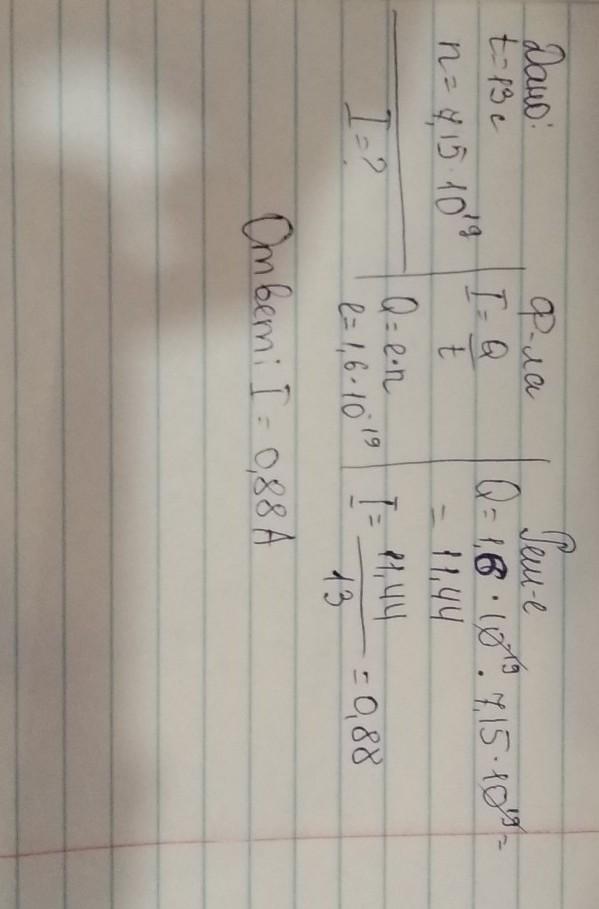 Дано:
t=13c
n=7,15·10¹⁹
I=?
Ф-ла
I=Q/t
Q=e·n
e=1,6·10⁻¹⁹
Реш-е
Q=1,6·10⁻¹⁹·7,15·10¹⁹=
=11,44
I=11,44/13=0,88
Ответ: I=0,88A